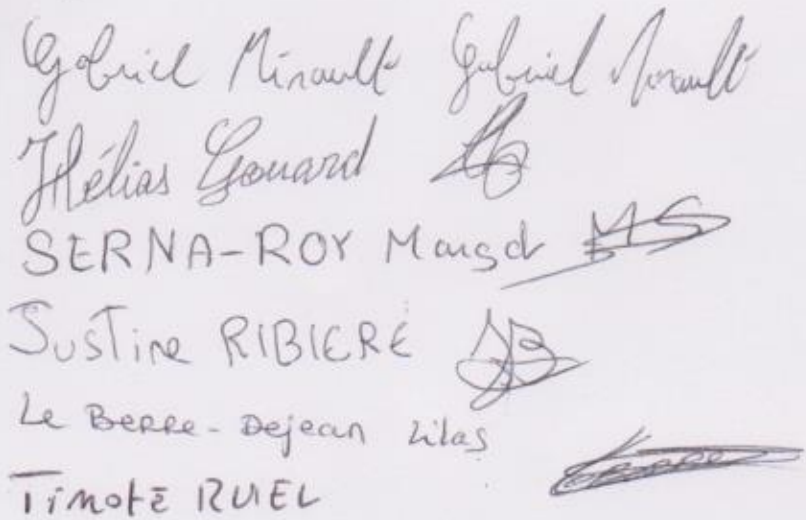 Gabriel Minault Gabriel Minault
Hélias Gouard
SERNA-ROY Margot MS
Justine RIBIERE JB
Le Berre-Dejean Lilas
Timoté RUEL